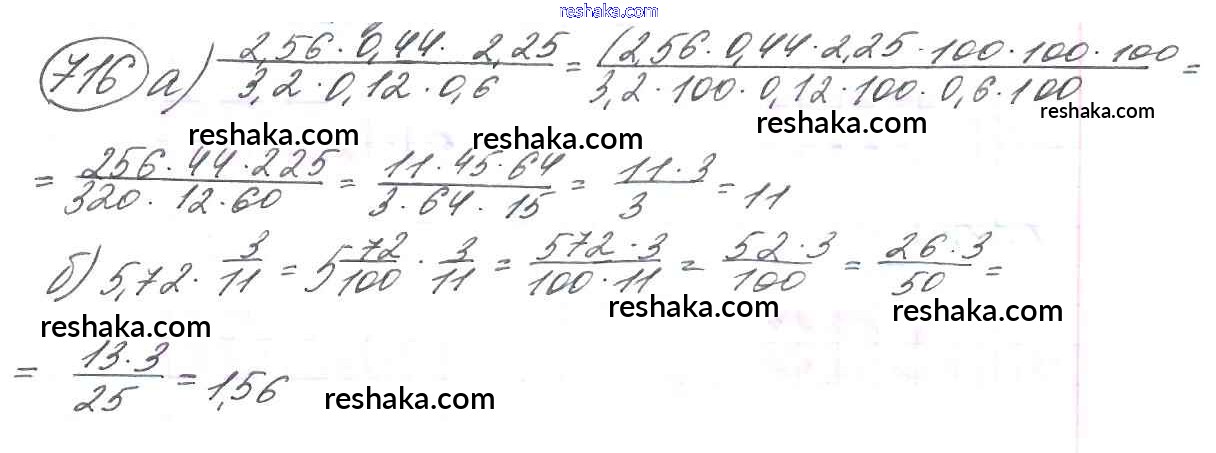 reshaka.com
716 а) 2,56 · 0,44 · 2,25 / 3,2 · 0,12 · 0,6 = (2,56 · 0,44 · 2,25 · 100 · 100 · 100 / 3,2 · 100 · 0,12 · 100 · 0,6 · 100 =
reshaka.com reshaka.com reshaka.com reshaka.com
= 256 · 44 · 225 / 320 · 12 · 60 = 11 · 45 · 64 / 3 · 64 · 15 = 11 · 3 / 3 = 11
б) 5,72 · 3/11 = 5 72/100 · 3/11 = 572 · 3 / 100 · 11 = 52 · 3 / 100 = 26 · 3 / 50 =
reshaka.com reshaka.com reshaka.com
= 13 · 3 / 25 = 1,56
reshaka.com